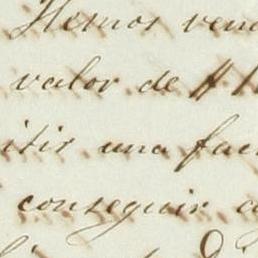 Hemos vend
valor de $ 1
itir una fac
conseguir a